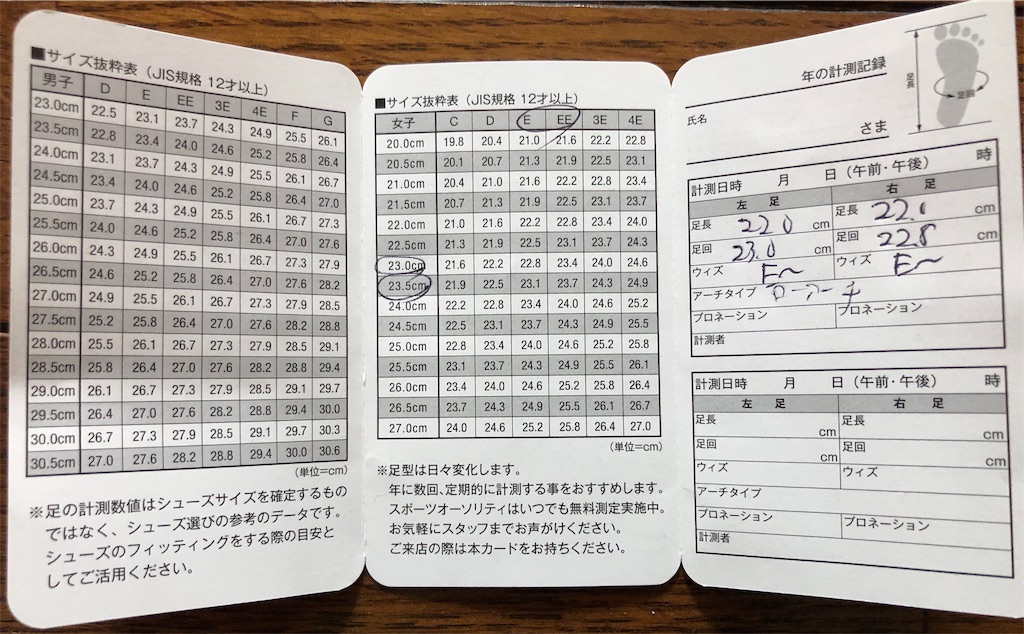 ■サイズ抜粋表（JIS規格 12才以上）
男子 D E EE 3E 4E F G
23.0cm 22.5 23.1 23.7 24.3 24.9 25.5 26.1
23.5cm 22.8 23.4 24.0 24.6 25.2 25.8 26.4
24.0cm 23.1 23.7 24.3 24.9 25.5 26.1 26.7
24.5cm 23.4 24.0 24.6 25.2 25.8 26.4 27.0
25.0cm 23.7 24.3 24.9 25.5 26.1 26.7 27.3
25.5cm 24.0 24.6 25.2 25.8 26.4 27.0 27.6
26.0cm 24.3 24.9 25.5 26.1 26.7 27.3 27.9
26.5cm 24.6 25.2 25.8 26.4 27.0 27.6 28.2
27.0cm 24.9 25.5 26.1 26.7 27.3 27.9 28.5
27.5cm 25.2 25.8 26.4 27.0 27.6 28.2 28.8
28.0cm 25.5 26.1 26.7 27.3 27.9 28.5 29.1
28.5cm 25.8 26.4 27.0 27.6 28.2 28.8 29.4
29.0cm 26.1 26.7 27.3 27.9 28.5 29.1 29.7
29.5cm 26.4 27.0 27.6 28.2 28.8 29.4 30.0
30.0cm 26.7 27.3 27.9 28.5 29.1 29.7 30.3
30.5cm 27.0 27.6 28.2 28.8 29.4 30.0 30.6
（単位=cm）
※足の計測数値はシューズサイズを確定するもの
ではなく、シューズ選びの参考のデータです。
シューズのフィッティングをする際の目安と
してご活用ください。
■サイズ抜粋表（JIS規格 12才以上）
女子 C D E EE 3E 4E
20.0cm 19.8 20.4 21.0 21.6 22.2 22.8
20.5cm 20.1 20.7 21.3 21.9 22.5 23.1
21.0cm 20.4 21.0 21.6 22.2 22.8 23.4
21.5cm 20.7 21.3 21.9 22.5 23.1 23.7
22.0cm 21.0 21.6 22.2 22.8 23.4 24.0
22.5cm 21.3 21.9 22.5 23.1 23.7 24.3
23.0cm 21.6 22.2 22.8 23.4 24.0 24.6
23.5cm 21.9 22.5 23.1 23.7 24.3 24.9
24.0cm 22.2 22.8 23.4 24.0 24.6 25.2
24.5cm 22.5 23.1 23.7 24.3 24.9 25.5
25.0cm 22.8 23.4 24.0 24.6 25.2 25.8
25.5cm 23.1 23.7 24.3 24.9 25.5 26.1
26.0cm 23.4 24.0 24.6 25.2 25.8 26.4
26.5cm 23.7 24.3 24.9 25.5 26.1 26.7
27.0cm 24.0 24.6 25.2 25.8 26.4 27.0
（単位=cm）
※足型は日々変化します。
年に数回、定期的に計測する事をおすすめします。
スポーツオーソリティはいつでも無料測定実施中。
お気軽にスタッフまでお声がけください。
ご来店の際は本カードをお持ちください。
年の計測記録
足長
足囲
氏名
さま
計測日時 月 日（午前・午後） 時
左 足 右 足
足長 22.0 cm 足長 22.0 cm
足回 23.0 cm 足回 22.8 cm
ウィズ E〜 ウィズ E〜
アーチタイプ ローアーチ
プロネーション プロネーション
計測者
計測日時 月 日（午前・午後） 時
左 足 右 足
足長 cm 足長 cm
足回 cm 足回 cm
ウィズ ウィズ
アーチタイプ
プロネーション プロネーション
計測者